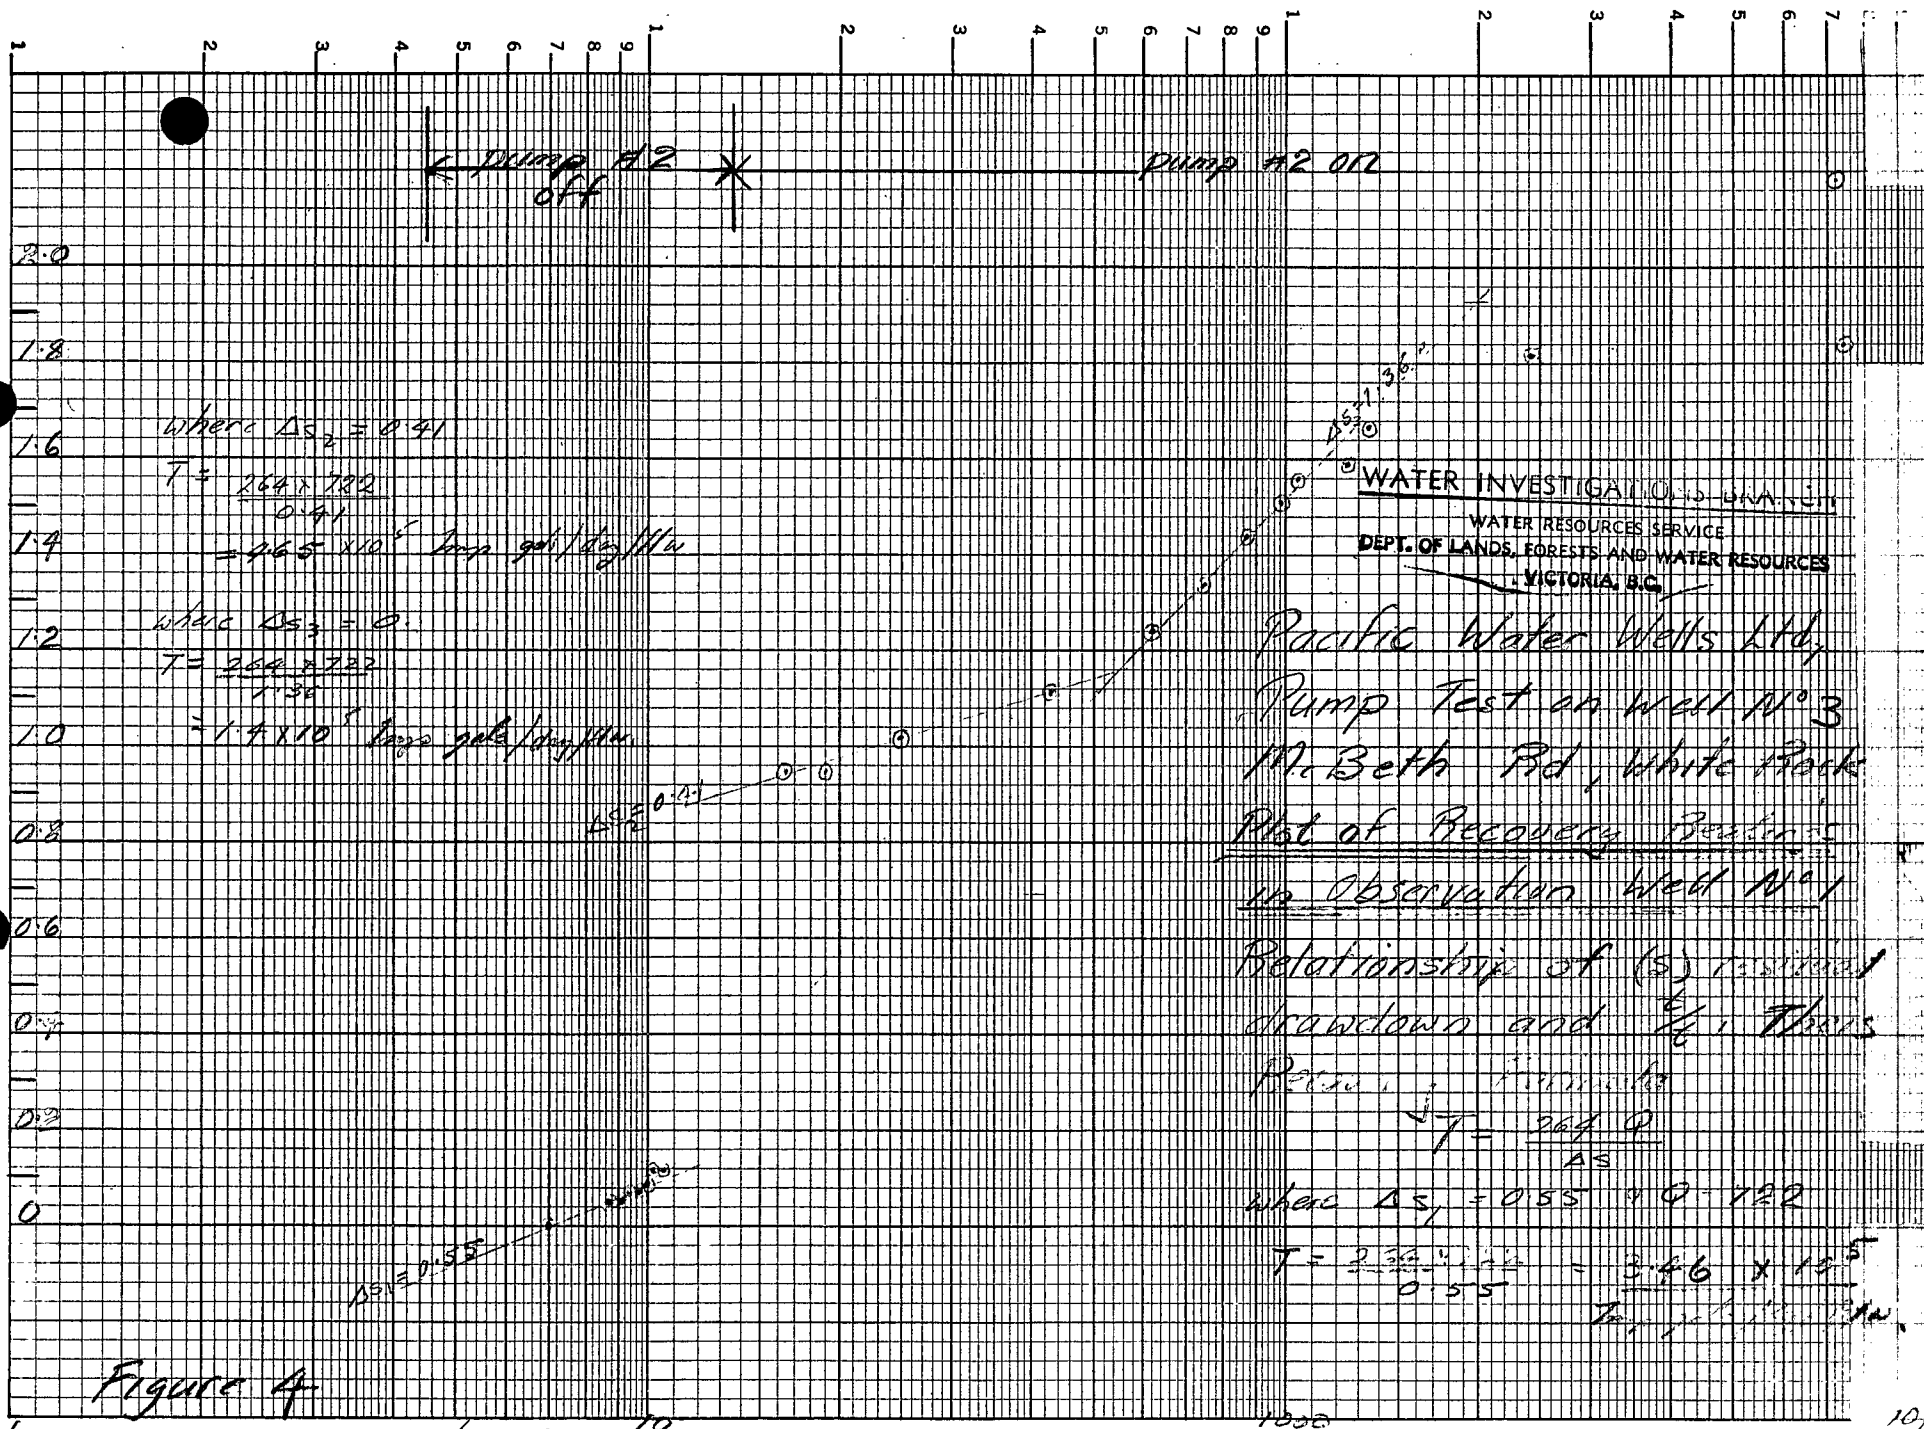 1 2 3 4 5 6 7 8 9 1 2 3 4 5 6 7 8 9 1 2 3 4 5 6 7
pump #2
off
pump #2 on
2.0
1.8
1.6
1.4
1.2
1.0
0.8
0.6
0.4
0.2
0
where Δs₂ = 0.41
T = 264 x 722
0.41
= 4.65 x 10⁵ Imp gals/day/
where Δs₃ = 0.
T = 264 x 722
1.36
= 1.4 x 10⁵ Imp gals/day/
Δs₃=1.36
Δs₂=0.41
Δs₁=0.55
WATER INVESTIGATIONS BRANCH
WATER RESOURCES SERVICE
DEPT. OF LANDS, FORESTS AND WATER RESOURCES
VICTORIA, B.C.
Pacific Water Wells Ltd,
Pump Test on Well Nº 3
Mc Beth Rd, White Rock
Plot of Recovery Readings
in Observation Well Nº 1
Relationship of (s) residual
drawdown and t/t'. Theis
Formula
T = 264 Q
Δs
where Δs₁ = 0.55 Q 722
T = 264 x 722 = 3.46 x 10⁵
0.55
Figure 4
10 1000